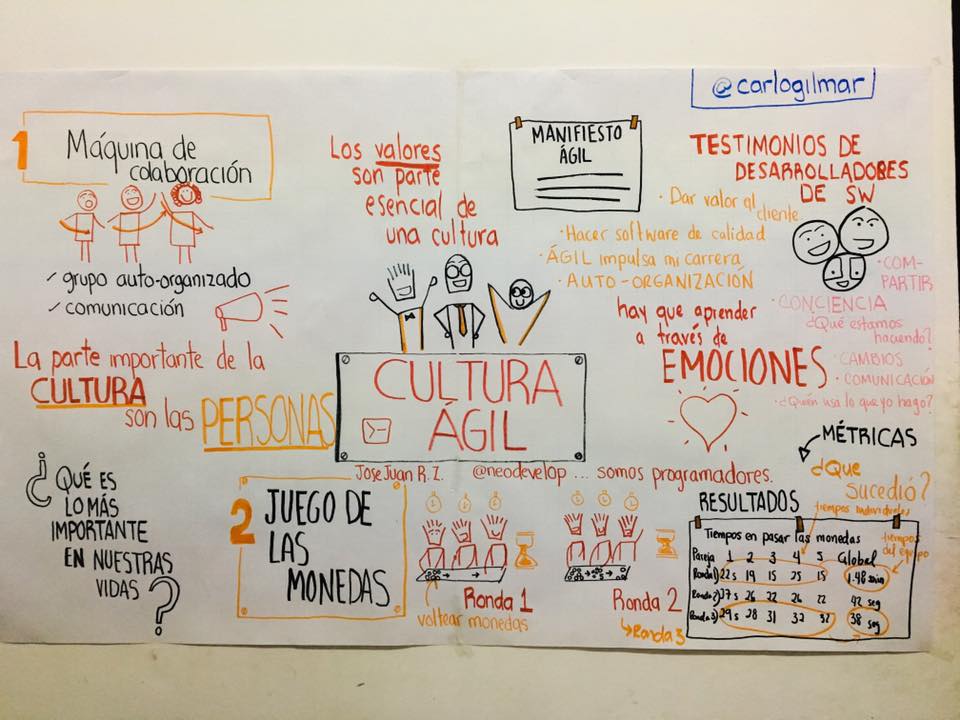 @carlogilmar
1
Máquina de
colaboración
✓ grupo auto-organizado
✓ comunicación
La parte importante de la
CULTURA
son las PERSONAS
¿QUÉ ES
LO MÁS
IMPORTANTE
EN NUESTRAS
VIDAS?
Los valores
son parte
esencial de
una cultura
MANIFIESTO
ÁGIL
CULTURA
ÁGIL
Jose Juan R. Z. @neodevelop ... somos programadores.
TESTIMONIOS DE
DESARROLLADORES
DE SW
· Dar valor al
cliente
· Hacer software de calidad
· ÁGIL impulsa mi carrera
· AUTO-ORGANIZACIÓN
· COM-
PARTIR
· CONCIENCIA
¿Qué estamos
haciendo?
· CAMBIOS
· COMUNICACIÓN
· ¿Quién usa lo que yo hago?
hay que aprender
a través de
EMOCIONES
2
JUEGO DE
LAS
MONEDAS
Ronda 1
voltear monedas
Ronda 2
Ronda 3
MÉTRICAS
¿Que
Sucedió?
RESULTADOS
tiempos individuales
tiempos
del equipo
Tiempos en pasar las monedas
Pareja 1 2 3 4 5 Global
Ronda 1) 22s 19 15 25 15 1.48 min
Ronda 2) 27s 26 22 26 22 42 seg
Ronda 3) 29s 28 31 32 32 38 seg